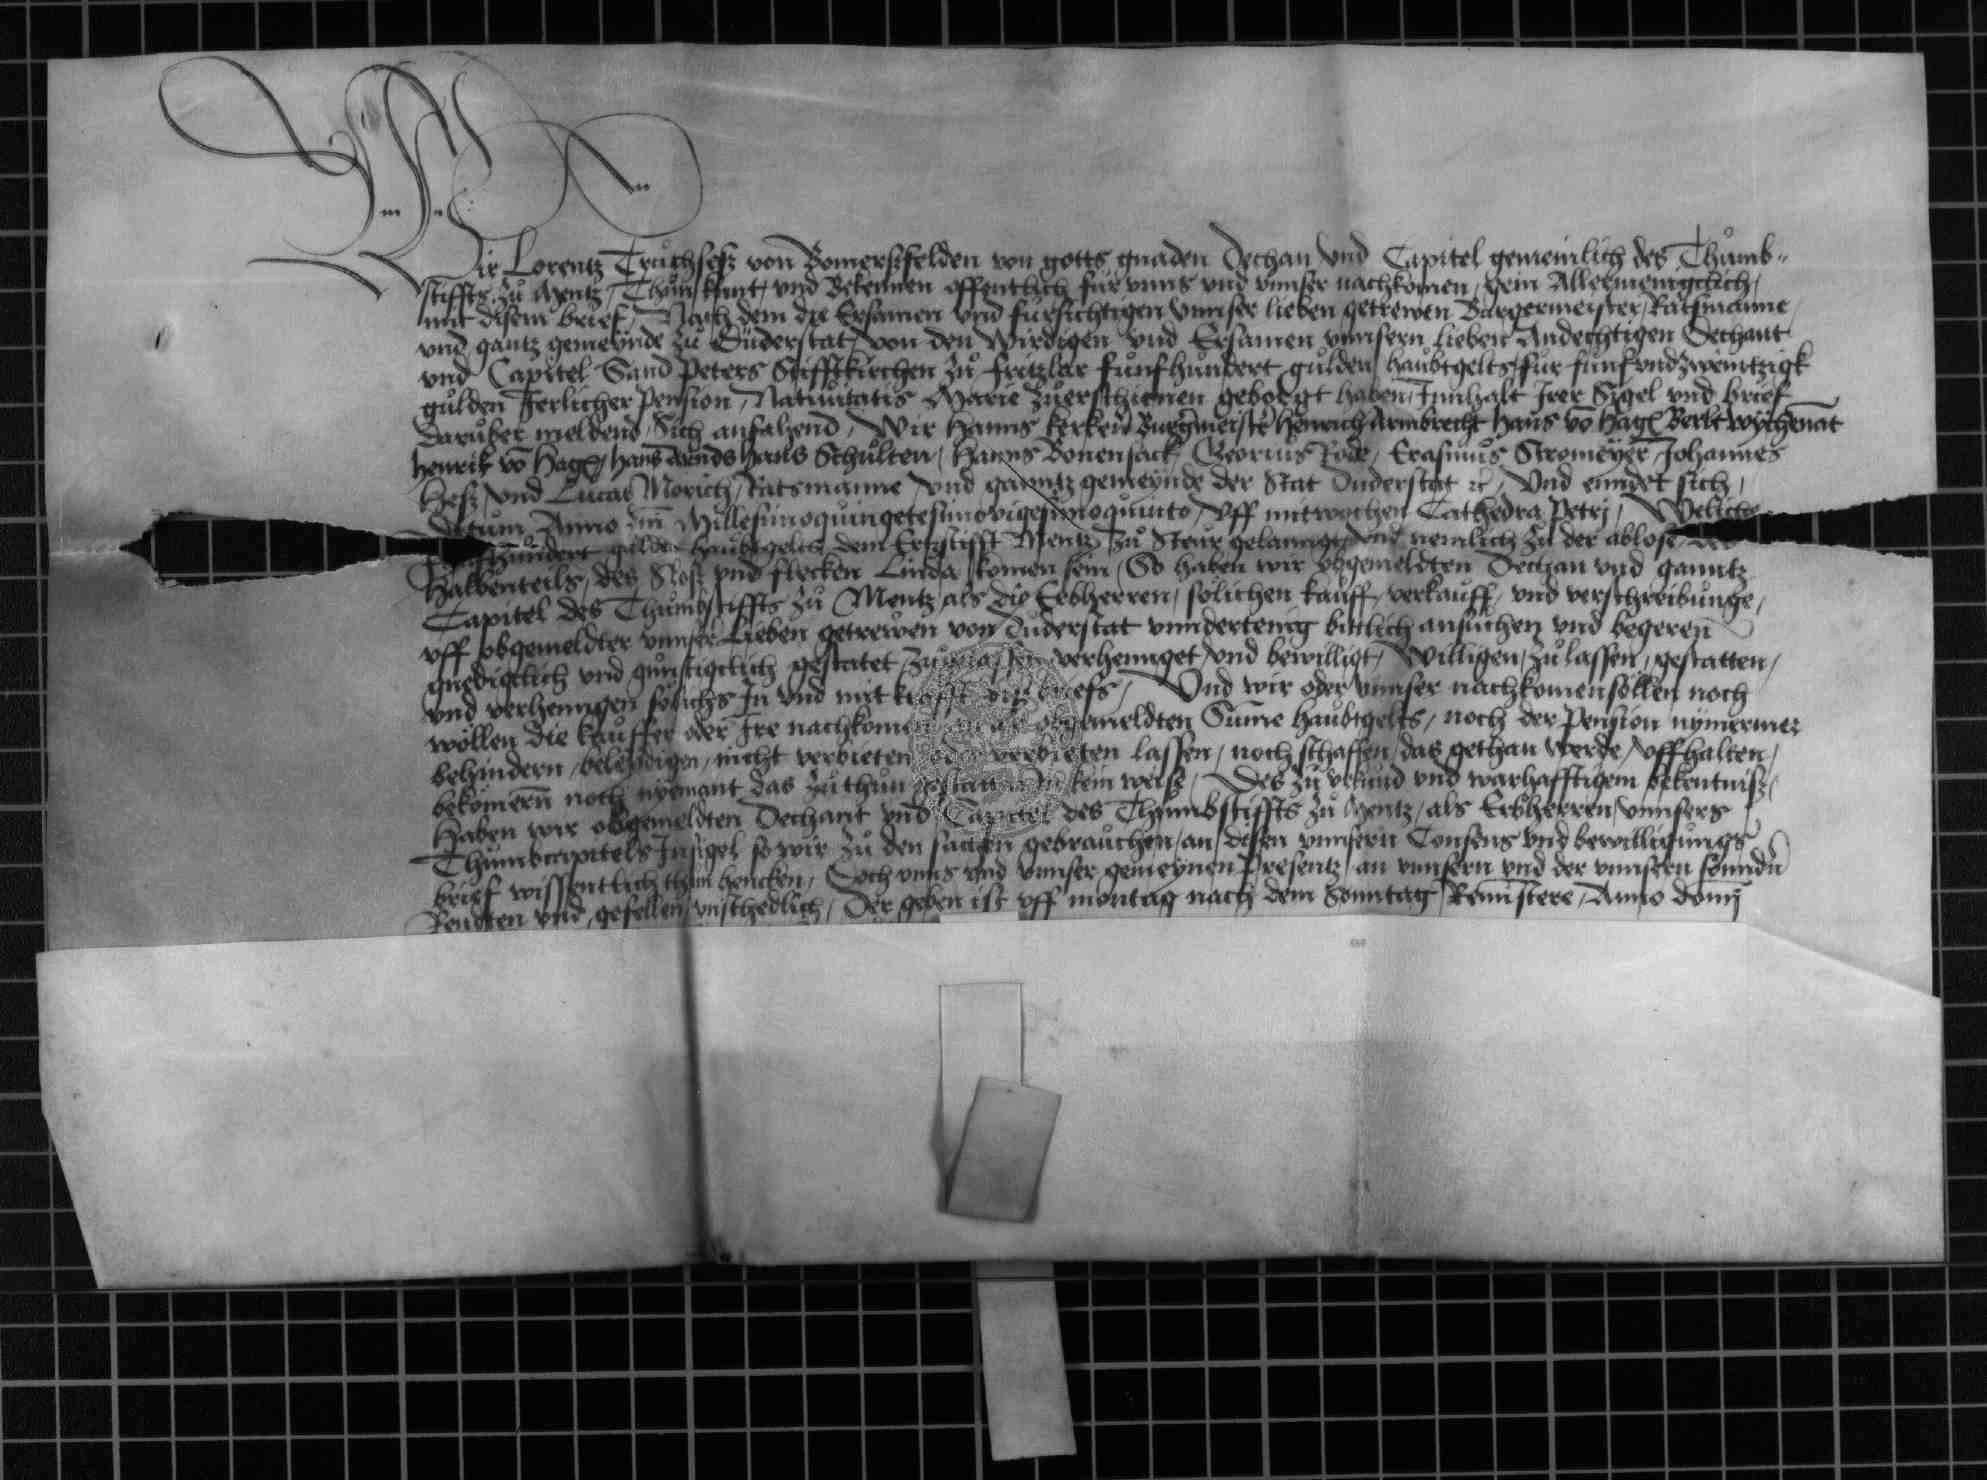 Wir Lorentz Truchseß von Bomerßfelden von gotts gnaden Dechan vnd Capitel gemeinlich des Thůmb-
stiffts zů Mentz, Thůn kunt, vnd Bekennen offentlich für vnns vnd vnnser nachkomen, gein Allermeniglich,
mit disem brief, Nach dem die Ersamen vnd fürsichtigen vnnser lieben getrewen Burgermeister, Ratsmanne,
vnd gantz gemeynde zů Duderstat, von den Wirdigen vnd Ersamen vnnsern lieben Andechtigen Dechant
vnd Capitel Sand Peters Stifftkirchen zů Fritzlar fůnfhůndert gůlden haůbtgelts, fůr fůnfvndzweintzigk
gůlden Jerlicher Pension, Natiuitatis Marie zuerschienen geborgt haben, Innhalt Jrer Sigel vnd brief
darůber meldend, Sich anfahend, Wir Hanns kerken Burgmeister Henrich Armbrecht Hans vō Hagē Berlt wychēnat
Henrik vō Hagē, hans Arends hans Schulten, Hanns Bonensack, Georius Rode, Erasmůs Stromeyer Johannes
Heß, vnd Lucas Morich, Ratsmanne, vnd ganntz gemeynde der Stat Duderstat ꝛc, Vnd enndet sich,
Datum Anno dm̄ Millesimoquingetesimovigesimoquinto, Vff mitwochen Cathedra Petrj, Weliche
hundert gulden haubtgelts dem Ertzstifft Mentz zů Steur gelannget, vnd nemlich zů der ablose der
Halbenteils, des Sloß vnd flecken Linda, komen sein, So haben wir obgemeldten Dechan vnd ganntz
Capitel des Thůmbstiffts zů Mentz, als die Erbherren, solichen kauff, verkauff, vnd verschreibunge,
vff obgemeldter vnnser Lieben getrewen von Duderstat vnndertenig bitlich ansuchen vnd begeren
gnediglich vnd gůnstiglich gestatet, zugelassen, verhennget, vnd bewilligt, Willigen, zůlassen, gestatten,
vnd verhenngen solichs Jn vnd mit krafft diß briefs, Vnd wir oder vnnser nachkomen sollen noch
wöllen die keuffer oder Ire nachkomen, an der obgemeldten Sume haubtgelts, noch der Pension nymermer
behindern, beleydigen, nicht verbieten, oder verbieten lassen, noch schaffen, das gethan werde, vffhalten,
bekomern noch nyemant das zů thun gestatten Jn kein weiß, Des zů vrkund vnd warhafftigem bekentniß,
Haben wir obgemeldten Dechant vnd Capitel des Thumbstiffts zů Mentz, als Erbherren, vnnsers
Thumbcapitels Jnsigel, so wir zů den sachen gebrauchen, an disen vnnsern Consens vnd bewilligungs
brief wissentlich thun hencken, Doch vnns vnd vnnser gemeynen Presentz, an vnnsern vnd der vnnsern
Rendten vnd gefellen, vnschedlich, Der geben ist vff montag nach dem Sonntag Reministere, Anno domj